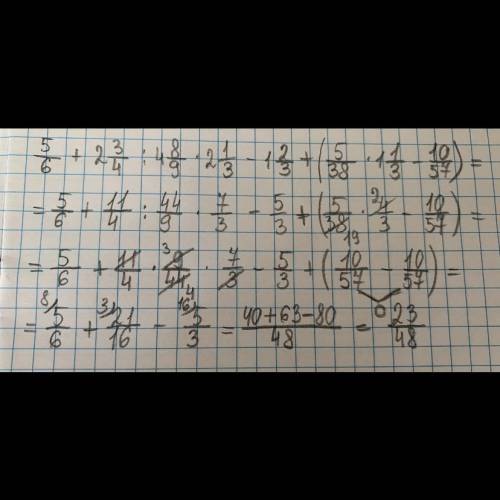 5/6 + 2 3/4 : 4 8/9 · 2 1/3 - 1 2/3 + (5/38 · 1 1/3 - 10/57) =
= 5/6 + 11/4 : 44/9 · 7/3 - 5/3 + (5/38 19 · 2 4/3 - 10/57) =
= 5/6 + 11/4 · 3 9/44 4 · 7/3 - 5/3 + (10/57 - 10/57) =
0
= 8/ 5/6 + 3/ 21/16 - 16/ 5/3 = 40+63-80/48 = 23/48